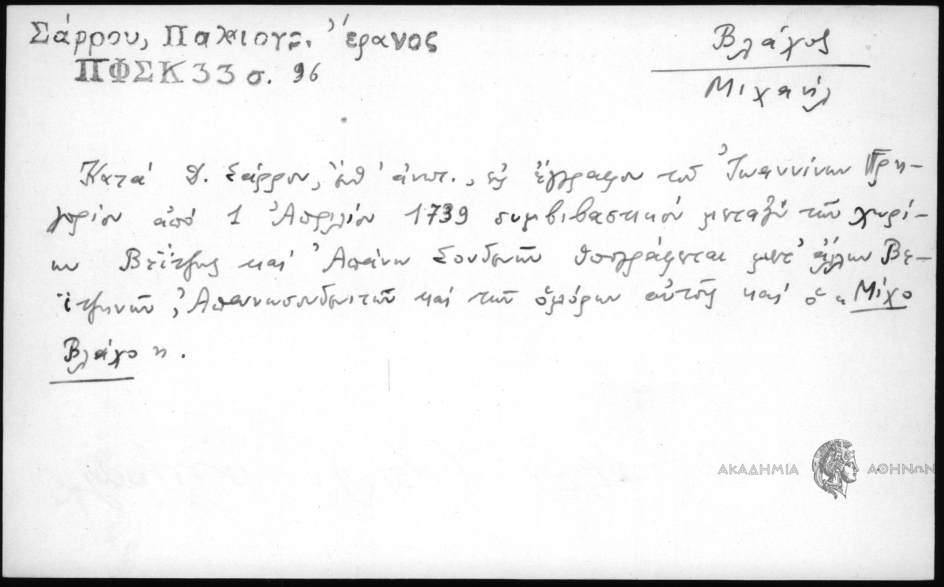 Σάρρου, Παλιογρ. ἔρανος
ΠΦΣΚ 33 σ. 96
Βλάχος
Μιχαήλ
Κατά Δ. Σάρρον, ἔνθ' ἀνωτ., εἰς ἔγγραφον τοῦ Ἰωαννίνων Γρη-
γορίου ἀπό 1 Ἀπριλίου 1739 συμβιβαστικόν μεταξύ τῶν χωρί-
ων Βεΐτζης καί Ἀπάνω Σουδενῶν ὑπογράφεται μετ' ἄλλων Βε-
ϊτζηνῶν, Ἀπανωσουδενιτῶν καί τῶν ὁμόρων αὐτοῖς καί ὁ «Μίχο
Βλάχο».
ΑΚΑΔΗΜΙΑ ΑΘΗΝΩΝ